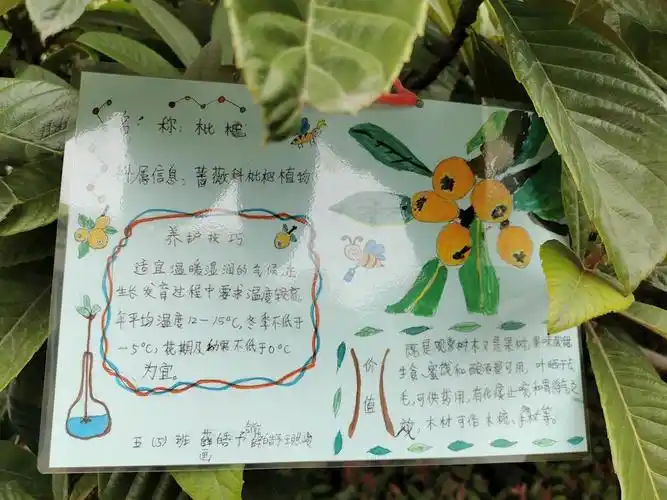 名称：枇杷
附属信息：蔷薇科枇杷植物
养护技巧
适宜温暖湿润的气候，在
生长发育过程中要求温度较高
年平均温度12—15°C，冬季不低于
-5°C，花期及幼果不低于0°C
为宜。
价值
既是观赏树木又是果树，果味
生食、蜜饯和酿酒 可用，叶晒干去
毛，可供药用，有化痰止咳和胃降气之
效，木材可作木梳、手杖等。
五（5）班
画